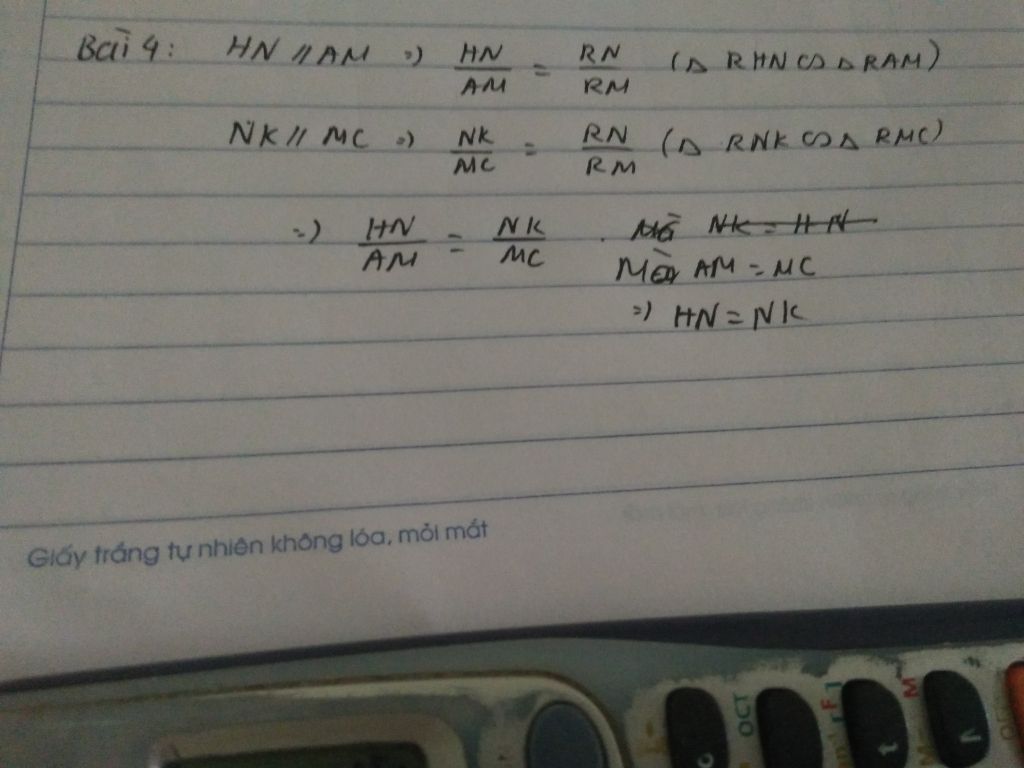 Bài 4: HN // AM => HN/AM = RN/RM (Δ RHN ∽ Δ RAM)
NK // MC => NK/MC = RN/RM (Δ RNK ∽ Δ RMC)
=> HN/AM = NK/MC . Mà NK = HN
Mà AM = MC
=> HN = NK
Giấy trắng tự nhiên không lóa, mỏi mắt
OCT